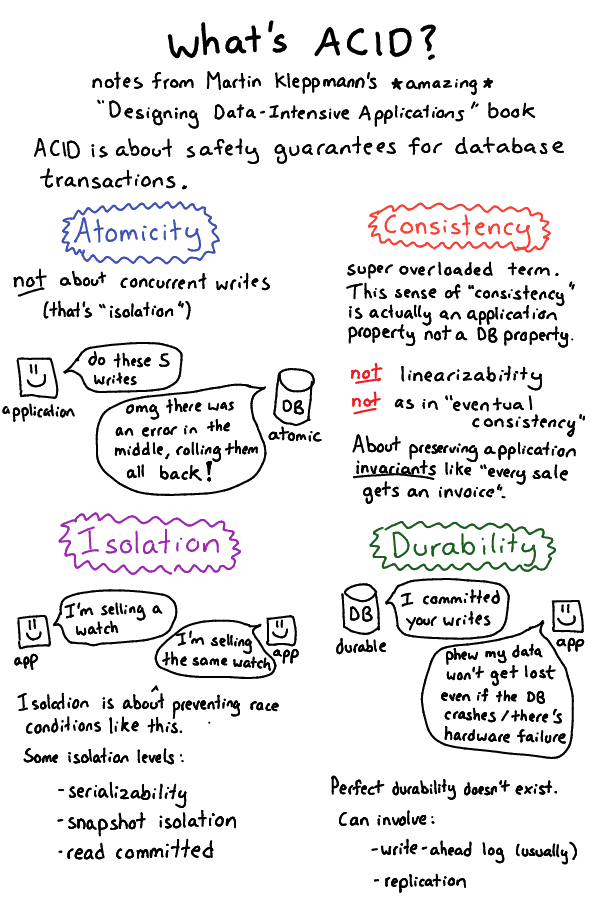 what's ACID?
notes from Martin Kleppmann's *amazing*
"Designing Data-Intensive Applications" book
ACID is about safety guarantees for database
transactions.
Atomicity
not about concurrent writes
(that's "isolation")
do these 5
writes
application
omg there was
an error in the
middle, rolling them
all back!
DB
atomic
Consistency
super overloaded term.
This sense of "consistency"
is actually an application
property not a DB property.
not linearizability
not as in "eventual
consistency"
About preserving application
invariants like "every sale
gets an invoice".
Isolation
I'm selling a
watch
app
I'm selling
the same watch
app
Isolation is about preventing race
conditions like this.
Some isolation levels:
- serializability
- snapshot isolation
- read committed
Durability
DB
durable
I committed
your writes
app
phew my data
won't get lost
even if the DB
crashes/there's
hardware failure
Perfect durability doesn't exist.
Can involve:
- write-ahead log (usually)
- replication